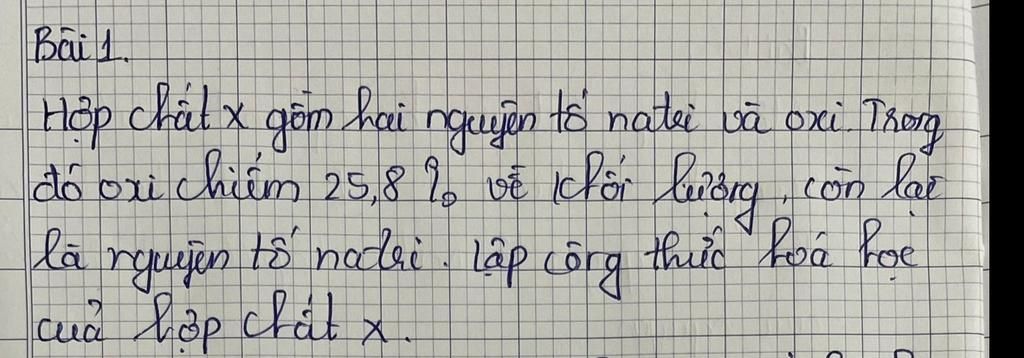 Bài 1.
Hợp chất x gồm hai nguyên tố natri và oxi. Trong
đó oxi chiếm 25,8 % về khối lượng, còn lại
là nguyên tố natri. Lập công thức hoá học
của hợp chất x.